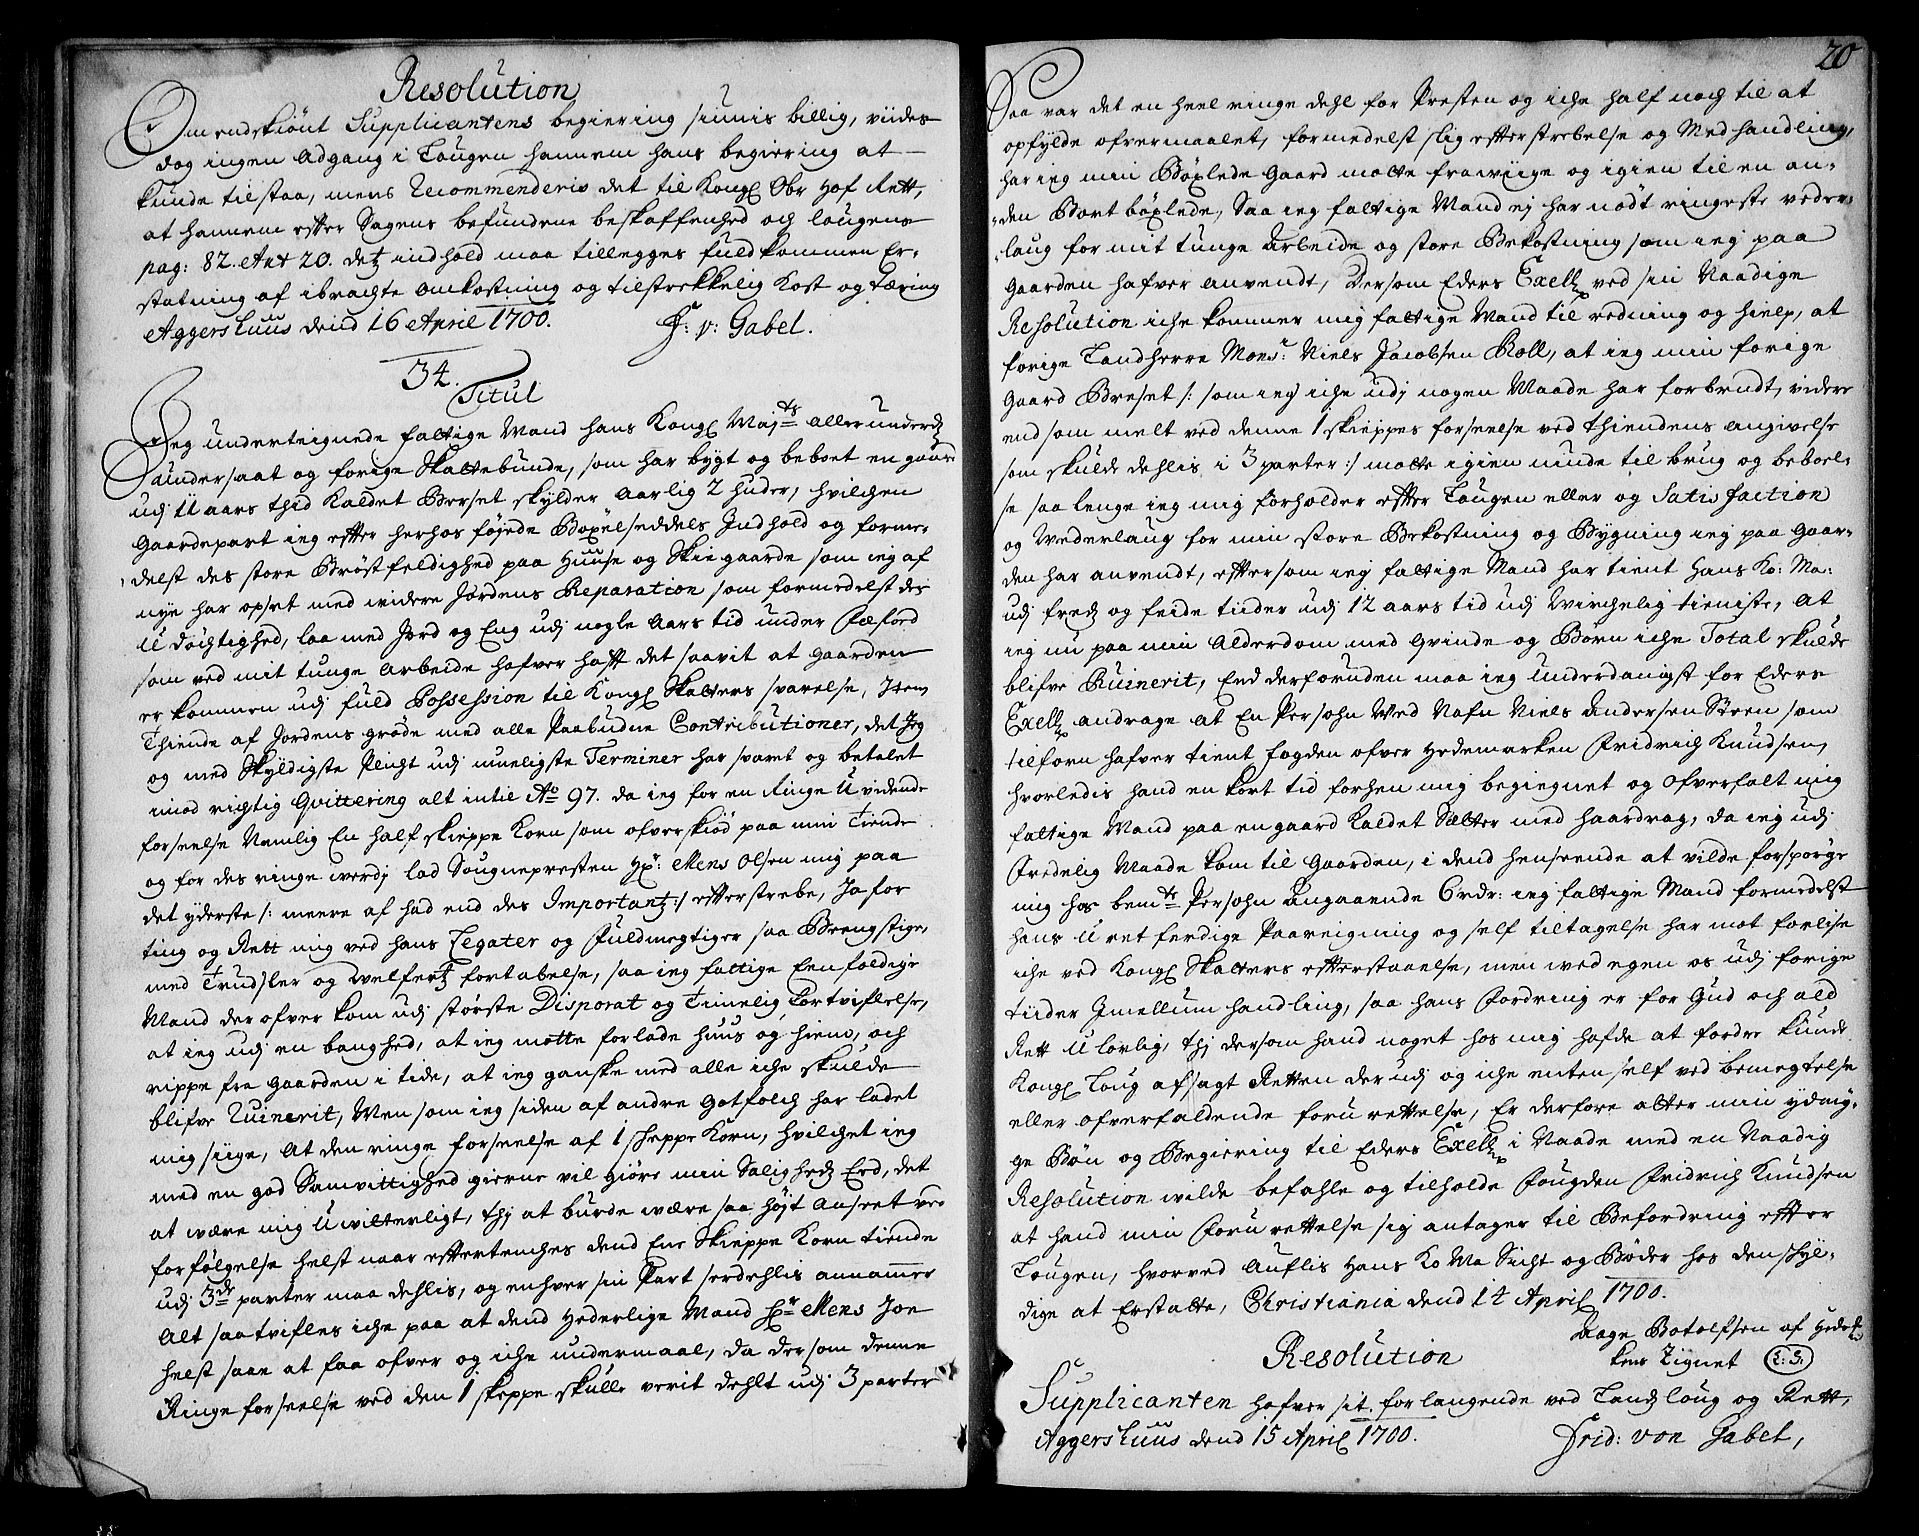 Resolution
Om endskiönt Supplicantens begiering siunis billig, viides
dog ingen Adgang i Lougen hannem hans begiering at
kunde tilstaa, mens Recommenderis det til Kongl Obr Hof Rett,
at hannem efter Sagens befundene beskaffenhed och lougens
pag: 82. Art 20. detz indhold maa tillegges fuldkommen Er-
statning af ibragte omkostning og tilstrekkelig Kost og Tæring
Aggershuus dend 16 April 1700. F: v: Gabel.
34.
Titul
Jeg underteignede fattige Mand hans Kongl Majts allerunderd
undersaat og forige Skattebunde, som har bygt og beboet en gaard
udj 11 aars thid Kaldet Berset skylder Aarlig 2 huder, hvilchen
Gaardepart ieg efter herhos föjede Böxelseddels Indhold og forme-
delst des store Bröstfeldighed paa Huuse og Skiegaarde som ieg af
nye har opset med widere Jordens Reparation som formedelst des
Udöchtighed, laa med Jord og Eng udj nogle Aars tid under Fæford
som ved mit tunge Arbeide hafver haft det saavit at Gaarden
er kommen udj fuld Possession til Kongl Skatters svarelse, Item
Thiende af Jordens gröde med alle Paabudne Contributioner, det Jeg
og med Skyldigste Plicht udj mueligste Terminer har svaret og betalet
imod richtig Qvittering alt intil Ao 97. da ieg for en Ringe Uvidende
forseelse Nemlig En half skieppe Korn som ofverskiöd paa min Tiende
og for des ringe werdj lod Sougnepresten Hr: Mens Olsen mig paa
det yderste /: meere af had end des Importantz :/ efterstrebe, Ja for
ting og Rett mig ved hans Legater og Fuldmegtiger saa Brengstige,
med Trudsler og Welfertz fortabelse, saa ieg fattige Eenfoldige
Mand derofver kom udj störste Disporat og Timelig Fortviflelse,
at ieg udj en banghed, at ieg motte forlade huus og hiem, och
rippe fra Gaarden i tide, at ieg ganske med alle iche skulde
blifve Ruinerit, Men som ieg siden af andre Gotfolch har ladet
mig siige, At den ringe forseelse af 1 skeppe Korn, hvilchet ieg
med en god Samvittighed gierne vil giöre min Saligheds Eed, det
at være mig Uwitterligt, thj at burde være saa höjt Anseet ved
forfölgelse helst naar eftertenches dend Ene Skieppe Korn tiende
udj 3de parter maa dehlis, og enhver sin Part serdehlis annammer
Alt saa tvifles iche paa at dend Hederlige Mand Hr Mens Jon
helst saae at faa ofver og iche undermaal, da dersom denne
Ringe forseelse ved den 1 skeppe skulle verit dehlt udj 3 parter
20
Saa var det en heel ringe dehl for Presten og iche half noch til at
opfylde ofvermaalet, formedelst slig efterstrebelse og Medhandling,
har ieg min Böxlede Gaard motte frawiige og igien til en an-
den Bortböxlede, Saa ieg fattige Mand ej har nödt ringeste veder-
laug for mit tunge Arbeide og store Bekostning som ieg paa
Gaarden hafver anvendt, Dersom Eders Exellz ved sin Naadige
Resolution iche kommer mig fattige Mand til redning og hielp, at
forige Landherre Monsr: Niels Jacobsen Koll, at ieg min forige
Gaard Breset /: som ieg iche udj nogen Maade har forbrudt, videre
end som melt ved denne 1 skieppes forseelse ved Thiendens angivelse
som skulde dehlis i 3 parter :/ motte igien niude til brug og beboel-
se saa lenge ieg mig forholder efter Lougen eller og Satisfaction
og Wederlaug for min store Bekostning og Bygning ieg paa Gaar-
den har anvendt, eftersom ieg fattige Mand har tient Hans Ko: Ma:
udj freds og feide tiider udj 12 aars tid udj Wirchelig tieniste, At
ieg nu paa min Alderdom med Qvinde og Börn iche Total skulde
blifve Ruinerit, End derforuden maa ieg underdanigst for Eders
Exellz andrage at En Persohn Ved Nafn Niels Andersen Steen som
tilforn hafver tient fogden ofver Hedemarken Fridrich Knudsen,
hvorledis hand en kort tid forhen mig begiegnet og Ofverfalt mig
fattige Mand paa en gaard Kaldet Sætter med haardrag, da ieg udj
Fredelig Maade kom til Gaarden, i dend henseende at vilde forspörge
mig hos bemte Persohn Angaaende 6 rdr: ieg fattige Mand formedelst
hans Uretferdige Paareigning og self tiltagelse har mot forlise
iche ved Kongl Skatters efterstaaelse, men wed egen os udj forige
tiider Imellum handling, saa hans Fordring er for Gud och ald
Rett Ulovlig, thj dersom hand noget hos mig hafde at fordre kunde
Kongl Loug afsagt Retten der udj og iche enten self ved bemegtelse
eller ofverfaldende foru rettelse, Er derfore atter min ydmy-
ge Bön og Begiering til Eders Exellz i Naade med en Naadig
Resolution wilde befahle og tilholde Fougden Fridrich Knudsen
at hand min Foru rettelse sig antager til Befordring efter
Lougen, hvorved Auflis Hans Ko Ma Sicht og Böder hos den skyl-
dige at Erstatte, Christiania dend 14 April 1700.
Aage Botolfsen af Hedem
kens Zignet L: S:
Resolution
Supplicanten hafver sit forlangende ved Landzloug og Rett,
Aggershuus dend 15 April 1700. Frid: von Gabel,